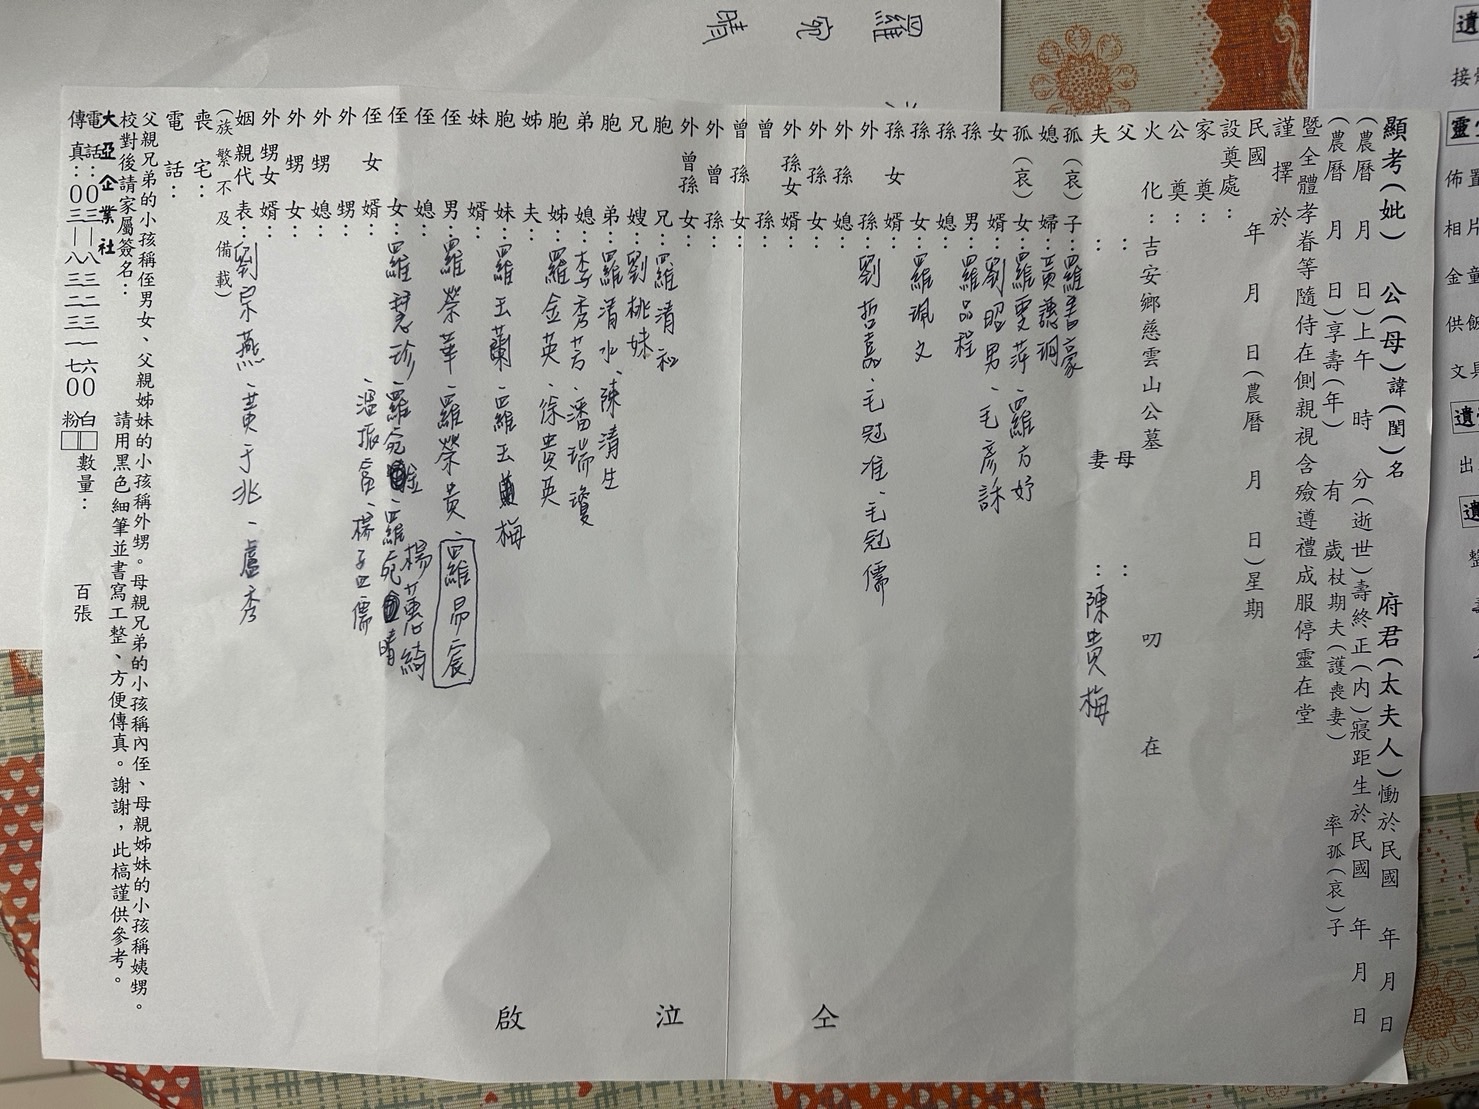 顯考(妣) 公(母)諱(閨)名 府君(太夫人)慟於民國 年 月 日
(農曆 月 日)上午 時 分(逝世)壽終正(內)寢距生於民國 年 月 日
(農曆 月 日)享壽(年) 有 歲杖期夫(護喪妻) 率孤(哀)子
暨全體孝眷等隨侍在側親視含殮遵禮成服停靈在堂
謹擇於
民國 年 月 日(農曆 月 日)星期
設奠處:
家奠:
公奠:
火化:吉安鄉慈雲山公墓 叨在
父: 母:
夫: 妻:陳貴梅
孤(哀)子:羅善豪
媳婦:黃議珮
孤(哀)女:羅雯萍、羅方妤
女婿:劉昭男、毛彥
孫男:羅品程
孫媳:
孫女:羅珮文
孫女婿:
外孫:劉哲嘉、毛冠准、毛冠儒
外孫媳:
外孫女:
外孫女婿:
曾孫:
曾孫女:
外曾孫:
外曾孫女:
胞兄:羅清和
兄嫂:劉桃妹
胞弟:羅清水、陳清生
弟媳:李秀芳、潘瑞瓊
胞姊:羅金英、徐貴英
姊夫:
胞妹:羅玉蘭、羅玉梅
妹婿:
侄男:羅榮華、羅榮貴、羅易宸
侄媳:楊蕙綺
侄女:羅慧珍、羅宛、羅宛晴
侄女婿:溫振富、楊子儒
外甥:
外甥媳:
外甥女:
外甥女婿:
姻親代表:劉泉燕、黃于兆、盧秀
(族繁不及備載)
喪宅:
電話:
父親兄弟的小孩稱侄男女、父親姊妹的小孩稱外甥。母親兄弟的小孩稱內侄、母親姊妹的小孩稱姨甥。
校對後請家屬簽名: 請用黑色細筆並書寫工整、方便傳真。謝謝,此槁謹供參考。
大亞企業社
電話:03—8322160 白□ 數量: 百張
傳真:03—8331170 粉□
仝 泣 啟
羅宛晴
遺
接
靈堂
佈置
相片
金童
供飯
文具
遺
出
遺